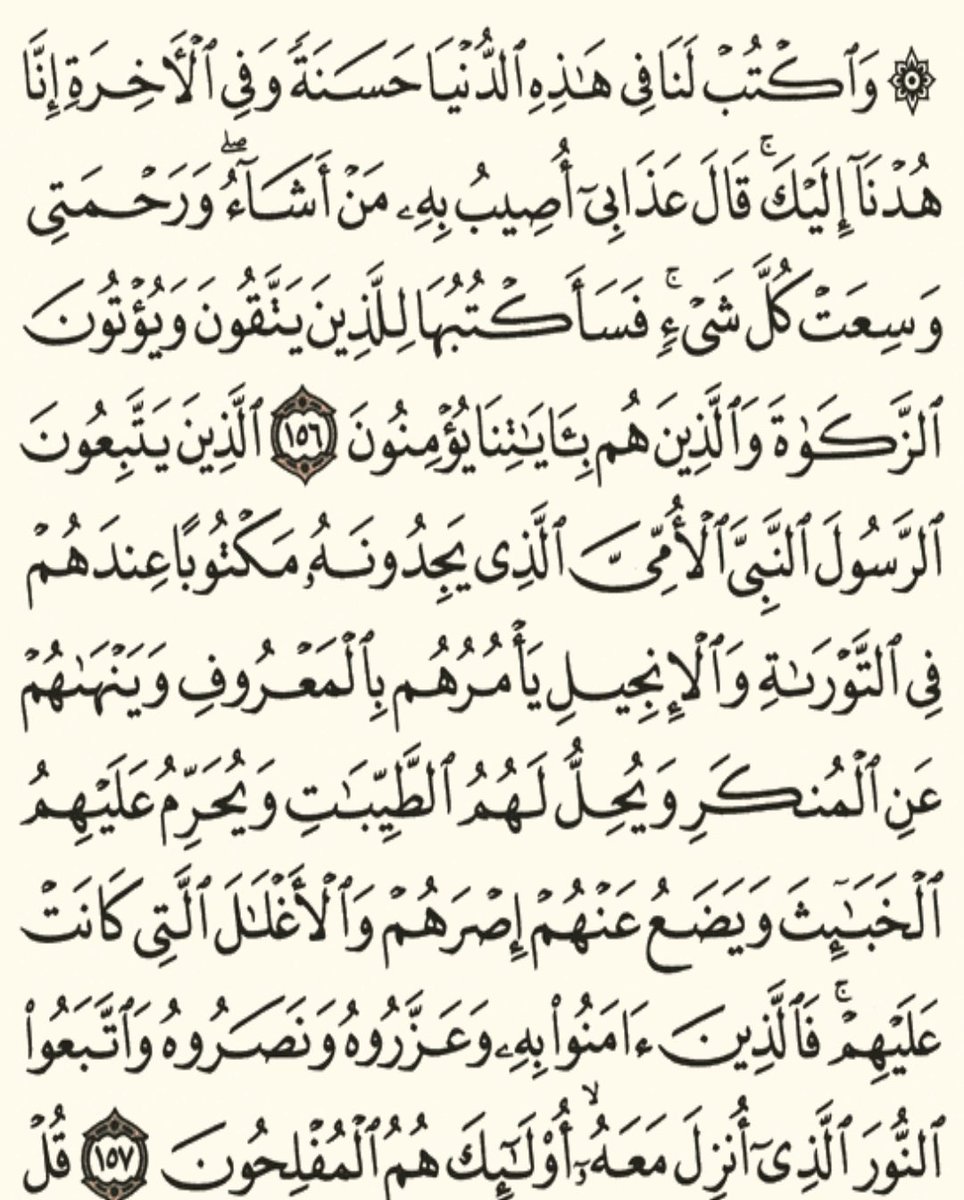 ۞ وَٱكۡتُبۡ لَنَا فِي هَٰذِهِ ٱلدُّنۡيَا حَسَنَةٗ وَفِي ٱلۡأٓخِرَةِ إِنَّا
هُدۡنَآ إِلَيۡكَۚ قَالَ عَذَابِيٓ أُصِيبُ بِهِۦ مَنۡ أَشَآءُۖ وَرَحۡمَتِي
وَسِعَتۡ كُلَّ شَيۡءٖۚ فَسَأَكۡتُبُهَا لِلَّذِينَ يَتَّقُونَ وَيُؤۡتُونَ
ٱلزَّكَوٰةَ وَٱلَّذِينَ هُم بِـَٔايَٰتِنَا يُؤۡمِنُونَ ١٥٦ ٱلَّذِينَ يَتَّبِعُونَ
ٱلرَّسُولَ ٱلنَّبِيَّ ٱلۡأُمِّيَّ ٱلَّذِي يَجِدُونَهُۥ مَكۡتُوبًا عِندَهُمۡ
فِي ٱلتَّوۡرَىٰةِ وَٱلۡإِنجِيلِ يَأۡمُرُهُم بِٱلۡمَعۡرُوفِ وَيَنۡهَىٰهُمۡ
عَنِ ٱلۡمُنكَرِ وَيُحِلُّ لَهُمُ ٱلطَّيِّبَٰتِ وَيُحَرِّمُ عَلَيۡهِمُ
ٱلۡخَبَٰٓئِثَ وَيَضَعُ عَنۡهُمۡ إِصۡرَهُمۡ وَٱلۡأَغۡلَٰلَ ٱلَّتِي كَانَتۡ
عَلَيۡهِمۡۚ فَٱلَّذِينَ ءَامَنُواْ بِهِۦ وَعَزَّرُوهُ وَنَصَرُوهُ وَٱتَّبَعُواْ
ٱلنُّورَ ٱلَّذِيٓ أُنزِلَ مَعَهُۥٓۙ أُوْلَٰٓئِكَ هُمُ ٱلۡمُفۡلِحُونَ ١٥٧ قُلۡ